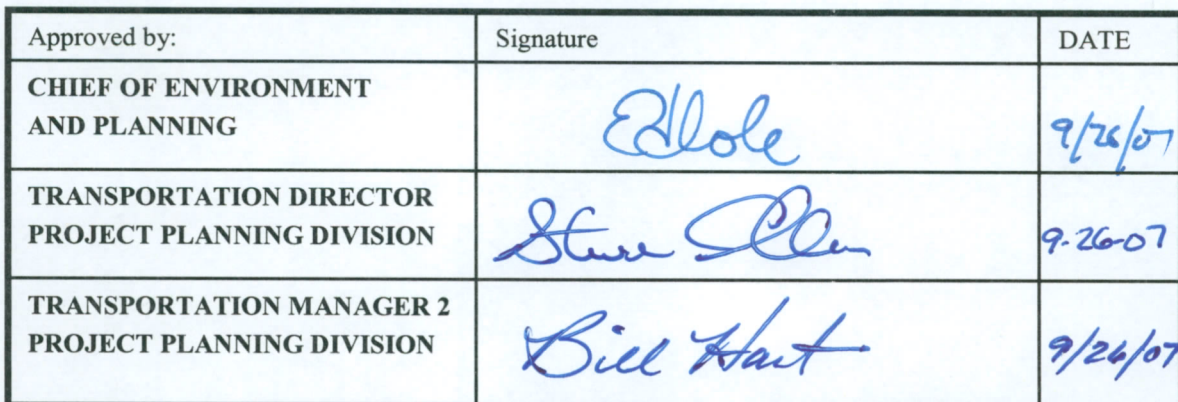 Approved by: Signature DATE
CHIEF OF ENVIRONMENT
AND PLANNING Ed Cole 9/26/07
TRANSPORTATION DIRECTOR
PROJECT PLANNING DIVISION Steve Allen 9-26-07
TRANSPORTATION MANAGER 2
PROJECT PLANNING DIVISION Bill Hart 9/26/07